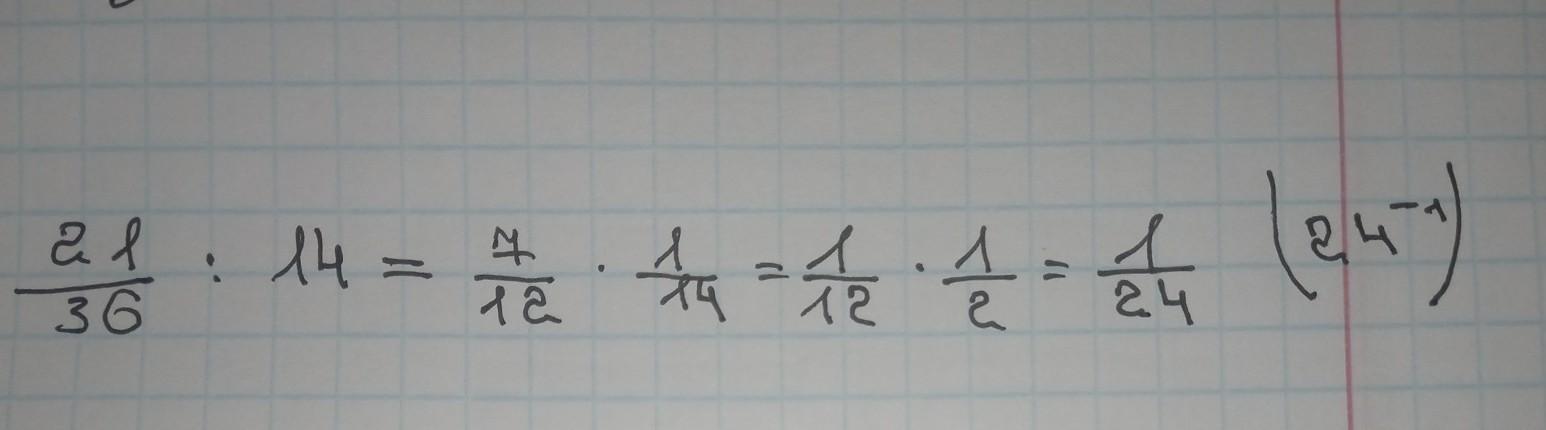 21/36 : 14 = 7/12 · 1/14 = 1/12 · 1/2 = 1/24 (24⁻¹)